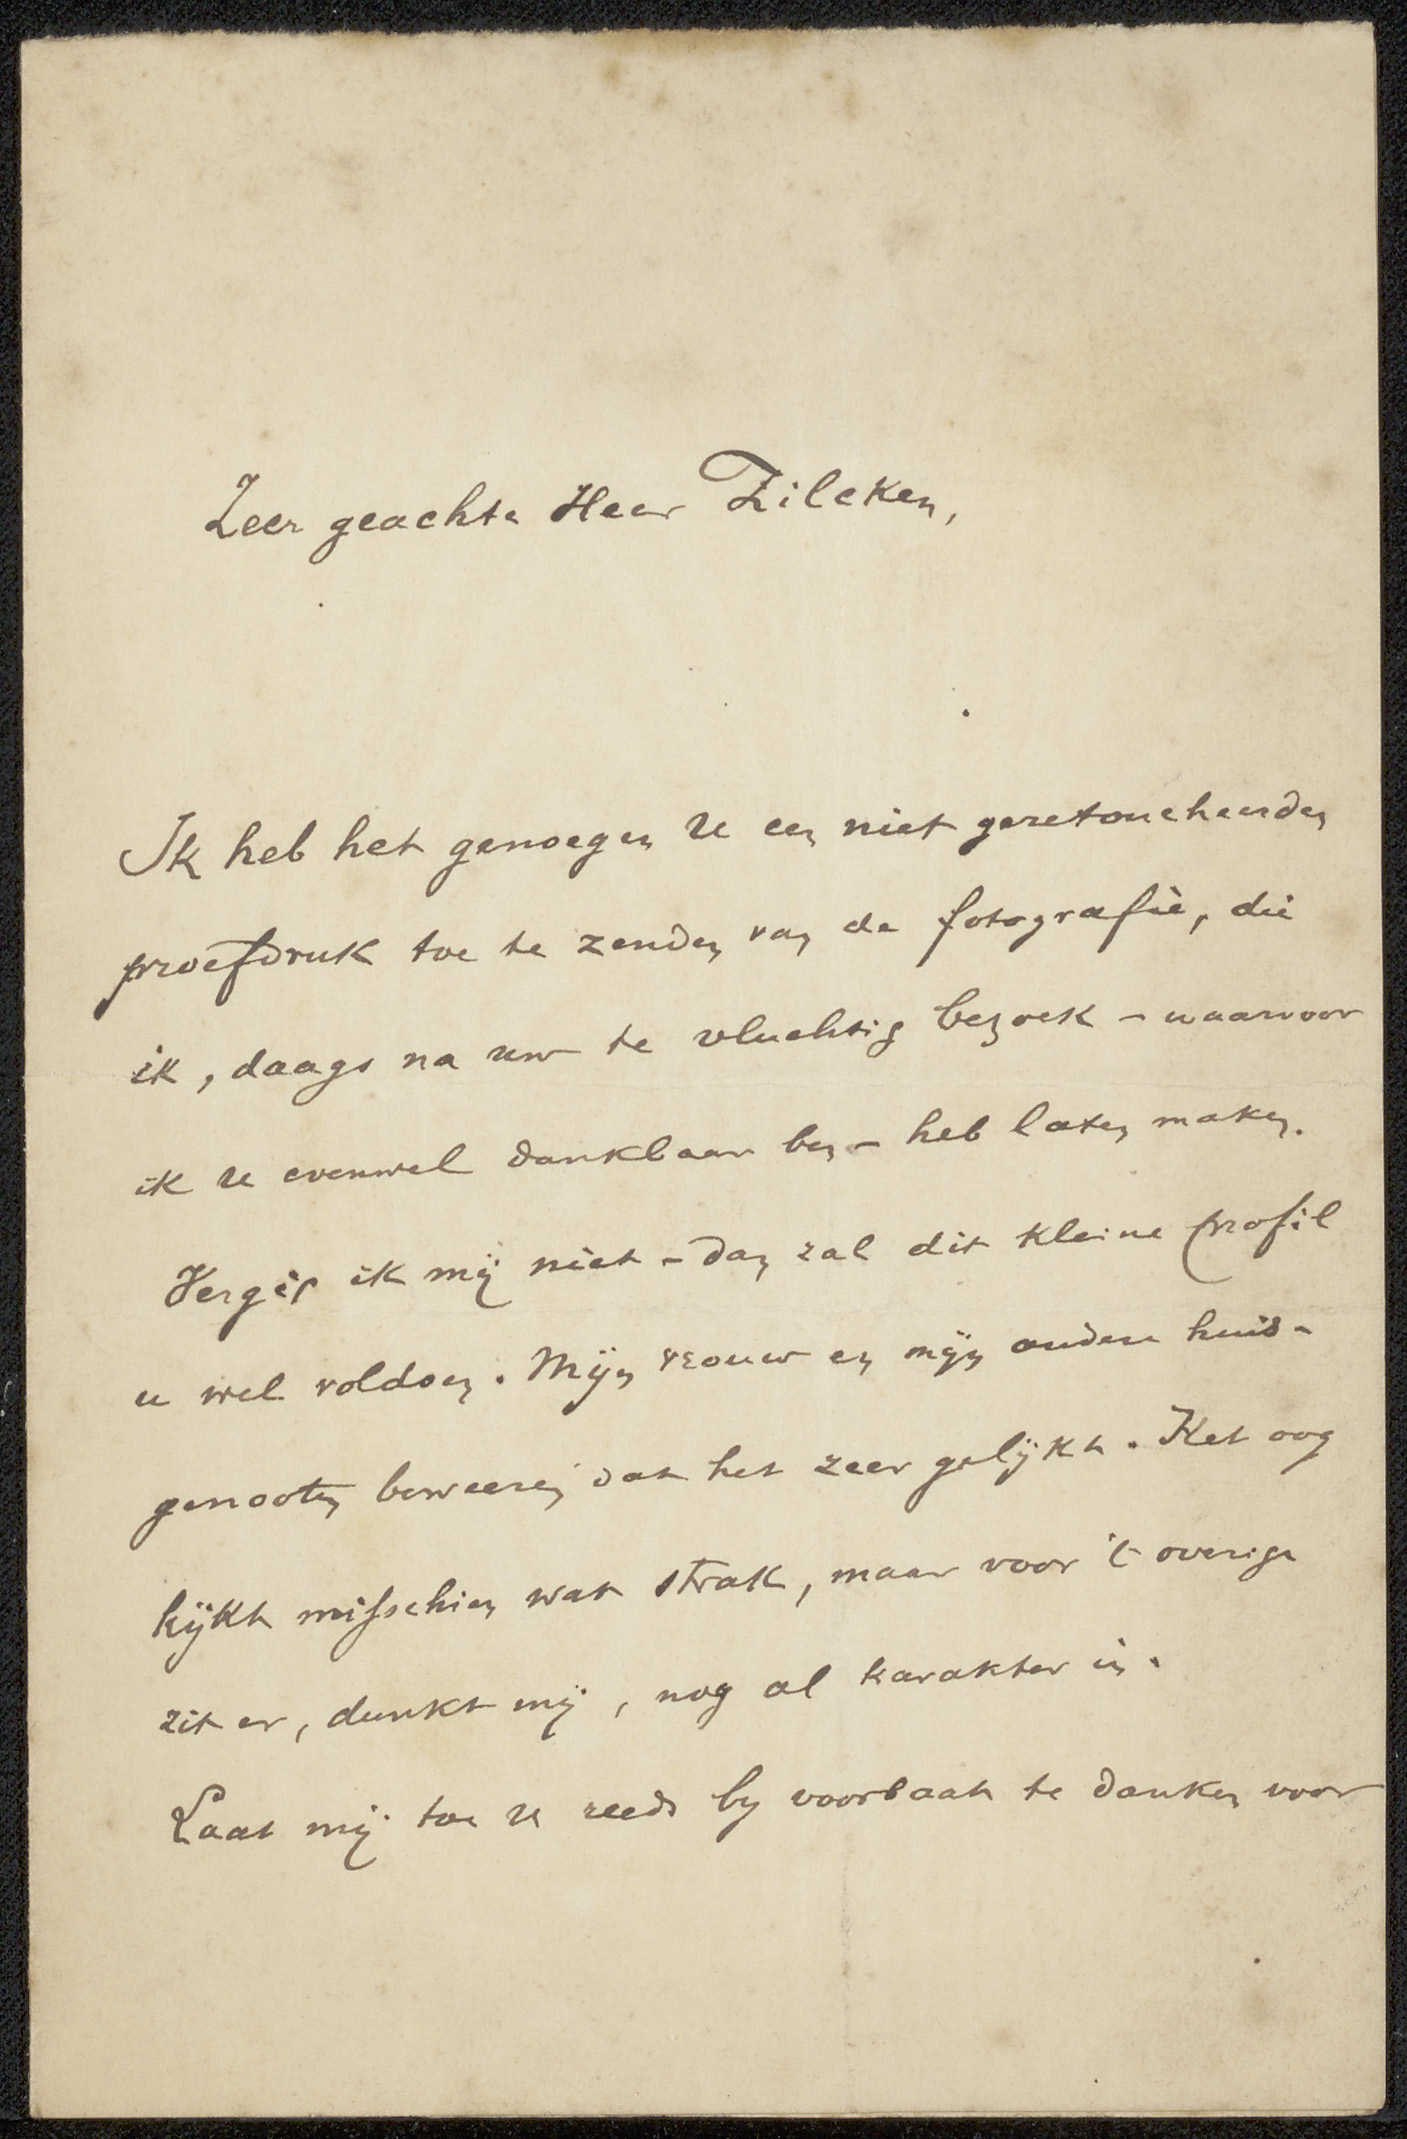 Zeer geachte Heer Zilcken,
Ik heb het genoegen U een niet geretoucheerden
proefdruk toe te zenden van de fotografie, die
ik, daags na uw te vluchtig bezoek - waarvoor
ik U evenwel dankbaar ben - heb laten maken.
Vergis ik mij niet - dan zal dit kleine profil
u wel voldoen. Mijn vrouw en mijn andere huis-
genooten beweeren dat het zeer gelijkt. Het oog
kijkt misschien wat strak, maar voor 't overige
zit er, dunkt mij, nog al karakter in.
Laat mij toe U reeds bij voorbaat te danken voor